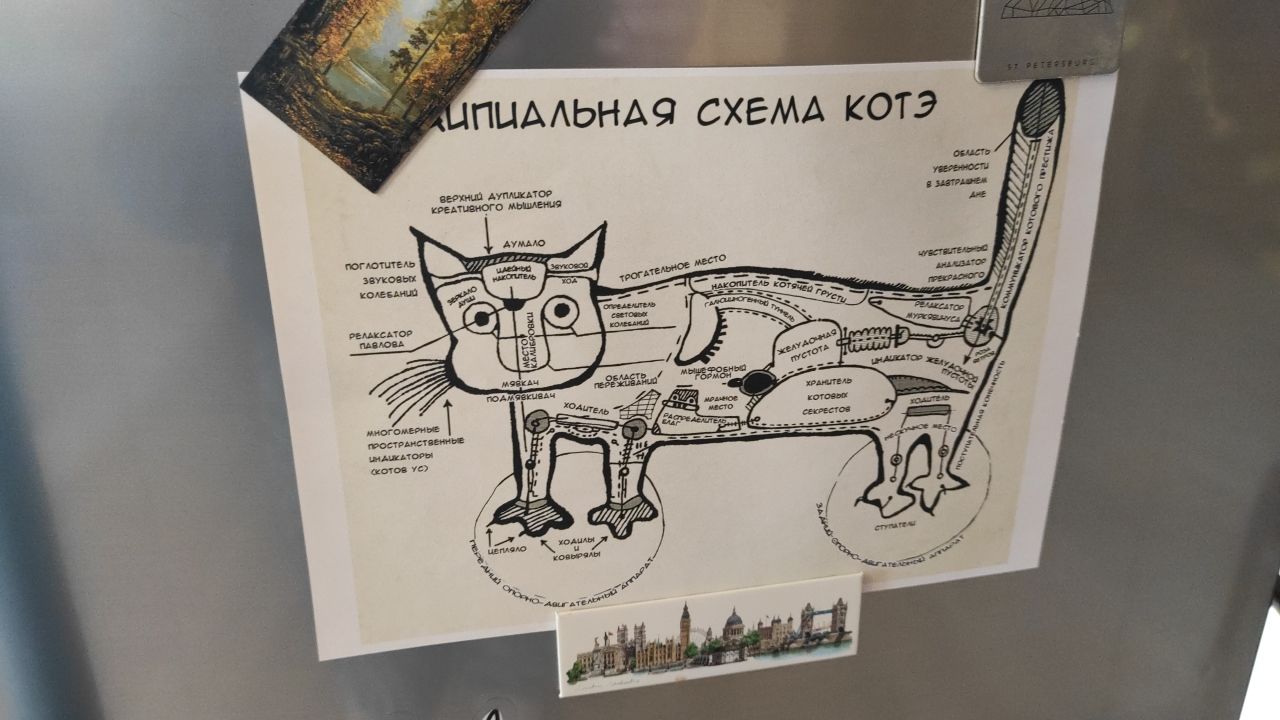 ST. PETERSBURG
ЦИПИАЛЬНАЯ СХЕМА КОТЭ
ОБЛАСТЬ
УВЕРЕННОСТИ
В ЗАВТРАШНЕМ
ДНЕ
КОММУНИКАТОР КОТОВОГО ПРЕСТИЖА
ВЕРХНИЙ ДУПЛИКАТОР
КРЕАТИВНОГО МЫШЛЕНИЯ
ДУМАЛО
ПОГЛОТИТЕЛЬ
ЗВУКОВЫХ
КОЛЕБАНИЙ
ИДЕЙНЫЙ
НАКОПИТЕЛЬ
ЗВУКОВОЙ
ХОД
ТРОГАТЕЛЬНОЕ МЕСТО
ЧУВСТВИТЕЛЬНЫЙ
АНАЛИЗАТОР
ПРЕКРАСНОГО
ЗЕРКАЛО
ДУШИ
НАКОПИТЕЛЬ КОТЯЧЕЙ ГРУСТИ
ГАЛЮЦИНОГЕННЫЙ ТУННЕЛЬ
ОПРЕДЕЛИТЕЛЬ
СВЕТОВЫХ
КОЛЕБАНИЙ
РЕЛАКСАТОР
МУРКЯВИЧУСА
РЕЛАКСАТОР
ПАВЛОВА
МЕСТО
КАЛИБРОВКИ
ЖЕЛУДОЧНАЯ
ПУСТОТА
ИНДИКАТОР ЖЕЛУДОЧНОЙ
ПУСТОТЫ
РОЗА
ВЕТРОВ
МЯВКАЧ
ПОДМЯВКИВАЧ
ОБЛАСТЬ
ПЕРЕЖИВАНИЙ
МЫШЕФОБНЫЙ
ГОРМОН
ХРАНИТЕЛЬ
КОТОВЫХ
СЕКРЕСТОВ
ХОДИТЕЛЬ
МРАЧНОЕ
МЕСТО
РАСПРЕДЕЛИТЕЛЬ
БЛАГ
ХОДИТЕЛЬ
МЕСТО
ПОСТУПАТЕЛЬНАЯ КОНЕЧНОСТЬ
МНОГОМЕРНЫЕ
ПРОСТРАНСТВЕННЫЕ
ИНДИКАТОРЫ
(КОТОВ УС)
ЦЕПЛЯЛО
ХОДИЛЫ
И
КОВЫРЯЛЫ
СТУПАТЕЛИ
ПЕРЕДНИЙ ОПОРНО-ДВИГАТЕЛЬНЫЙ АППАРАТ
ЗАДНИЙ ОПОРНО-ДВИГАТЕЛЬНЫЙ АППАРАТ